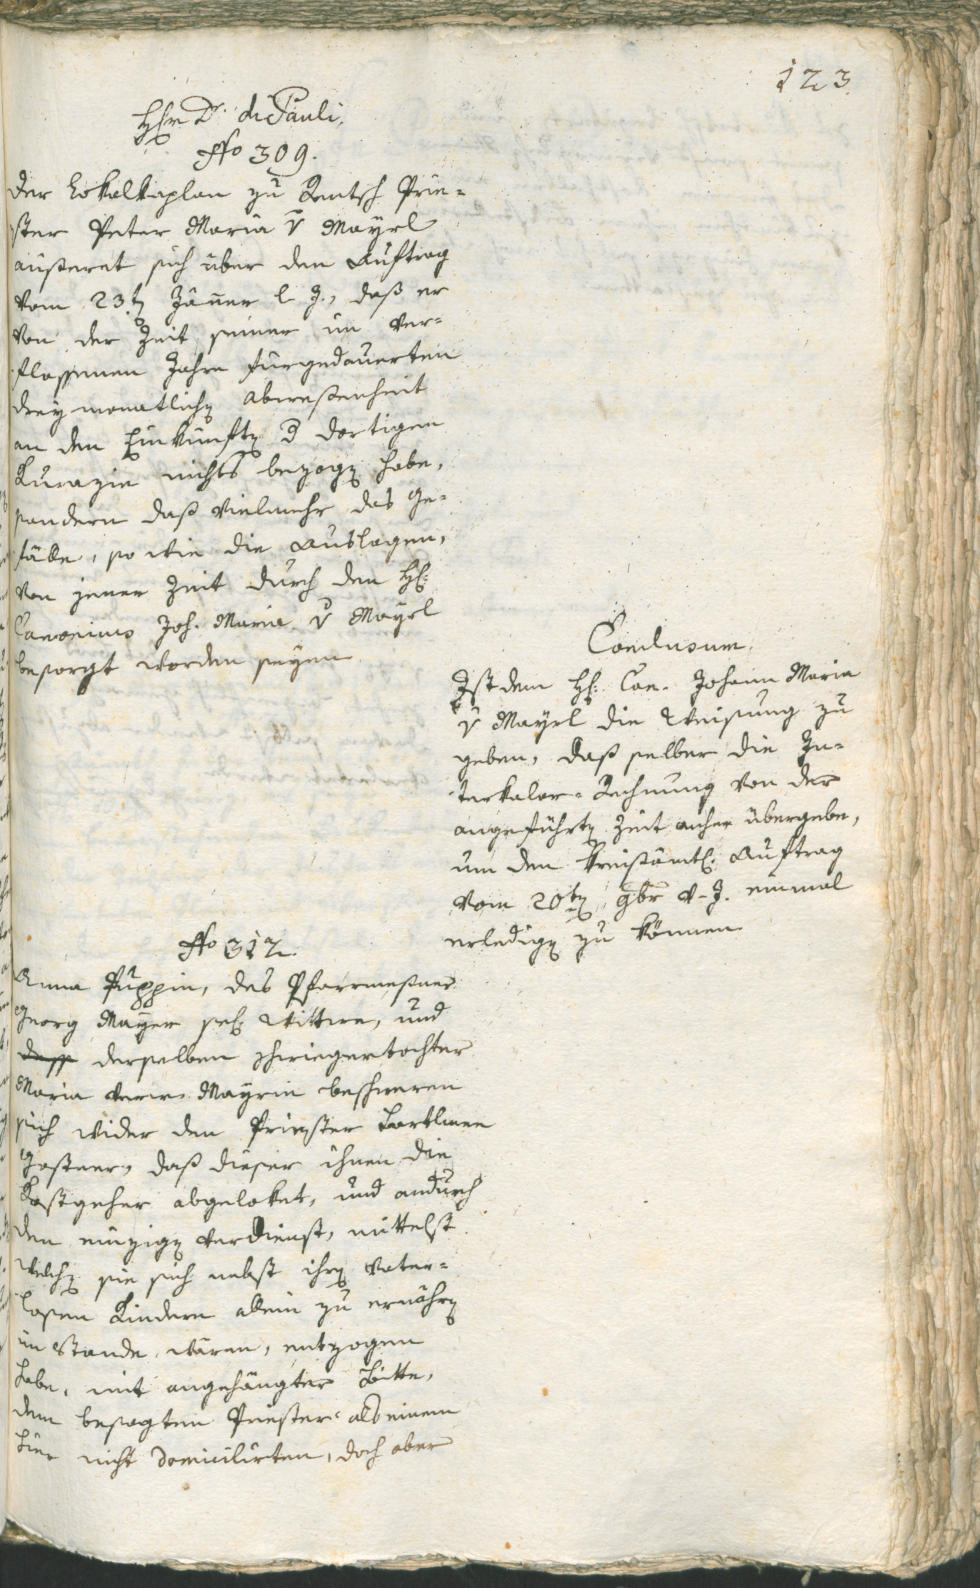 123.
Hℌr Dr. di Pauli.
No 309.
Der Lokalkaplan zu Rentsch Prie-
ster Peter Maria v Mayrl
äußeret sich über den Auftrag
vom 23.tn Jäner l. J., daß er
von der Zeit seiner im ver-
flossenen Jahre fürgedauerten
drey monatlichen Abwesenheit
an den Einkünften d dortigen
Kurazie nichts bezogen habe,
sondern daß vielmehr das Ge-
fälle, so wie die Auslagen,
von jener Zeit durch den H:
Canonicus Joh. Maria v Mayrl
besorgt worden seyen.
Conclusum.
Ist dem H: Can. Johann Maria
v Mayrl die Weisung zu
geben, daß selber die In-
terkalar-Rechnung von der
angeführten Zeit anher übergebe,
um den kreisämtl. Auftrag
vom 20ten 9br v. J. einmal
erledigen zu können.
No 312.
Anna Puppin, des Pfarrmeßners
Georg Mayer sel: Wittwe, und
derselben Schwiegertochter
Maria verw. Mayrin beschweren
sich wider den Priester Bartlmee
Gostner, daß dieser ihnen die
Kostgeher abgeloket, und andurch
den einzigen Verdienst, mittelst
welchen sie sich nebst ihren Vater-
losen Kindern allein zu ernähren
im Stande wären, entzogen
habe, mit angehängter Bitte,
dem besagten Priester als einem
hier nicht Domicilirten, doch aber